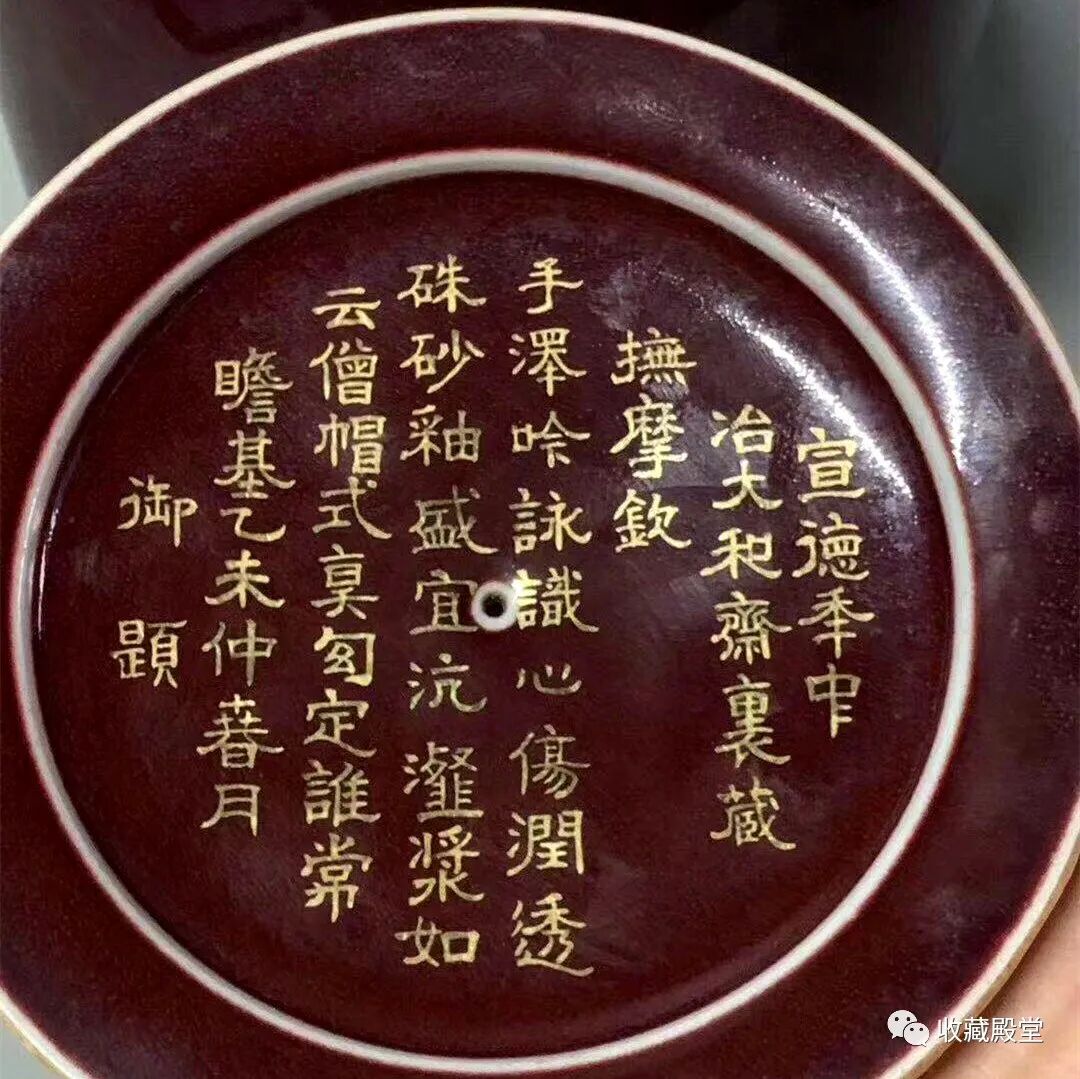 宣德年中
冶大和齋裏蔵
撫摩欽
手澤吟詠識心傷潤透
硃砂釉盛宜沆瀣漿如
云僧帽式真匆定誰常
瞻基乙未仲春月
御題
收藏殿堂